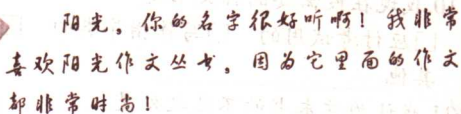 阳光，你的名字很好听啊！我非常
喜欢阳光作文丛书，因为它里面的作文
都非常时尚！